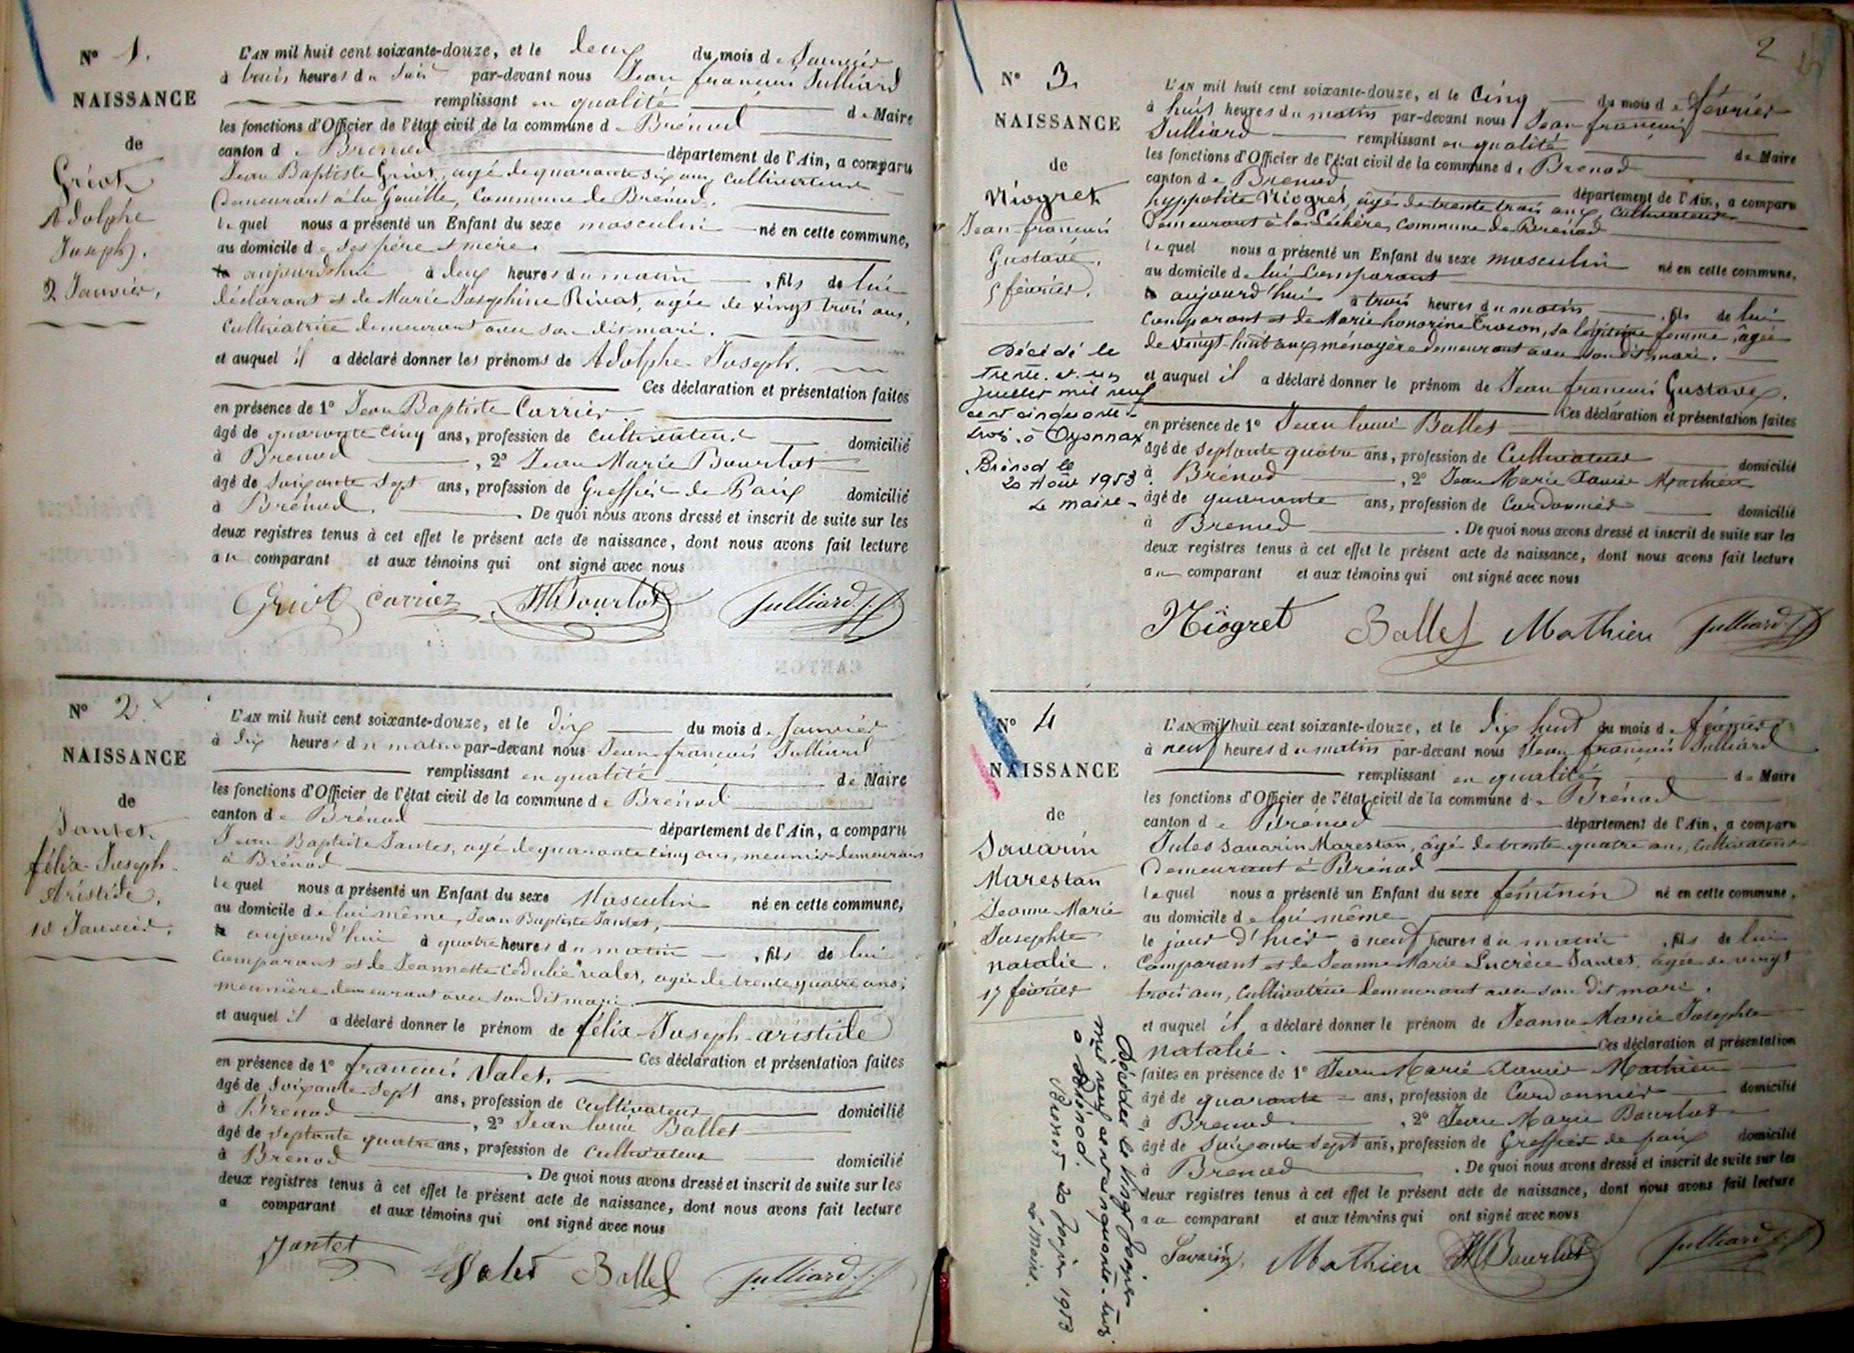 N° 1.
NAISSANCE
de
Griot
Adolphe
Joseph.
2 Janvier.
L'AN mil huit cent soixante-douze, et le deux du mois de Janvier
à trois heures du soir par-devant nous Jean françois Julliard
remplissant en qualité de Maire
les fonctions d'Officier de l'état civil de la commune de Brénod
canton de Brénod département de l'Ain, a comparu
Jean Baptiste Griot, agé de quarante six ans, cultivateur
demeurant à la Gouille, commune de Brénod.
lequel nous a présenté un Enfant du sexe masculin né en cette commune,
au domicile de ses père & mère.
aujourdhui à deux heures du matin, fils de lui
déclarant et de Marie Joséphine Rivat, agée de vingt trois ans,
cultivatrice demeurant avec son dit mari.
et auquel il a déclaré donner les prénoms de Adolphe Joseph.
Ces déclaration et présentation faites
en présence de 1° Jean Baptiste Carrier
âgé de quarante cinq ans, profession de cultivateur domicilié
à Brenod, 2° Jean Marie Bourlot
âgé de soixante sept ans, profession de Greffier de Paix domicilié
à Brénod. De quoi nous avons dressé et inscrit de suite sur les
deux registres tenus à cet effet le présent acte de naissance, dont nous avons fait lecture
au comparant et aux témoins qui ont signé avec nous
Griot Carriez JMBourlot Julliard J.f.
N° 2.
NAISSANCE
de
Jantet
félix-Joseph-
Aristide.
10 Janvier.
L'AN mil huit cent soixante-douze, et le dix du mois de Janvier
à dix heures du matin par-devant nous Jean-françois Julliard
remplissant en qualité de Maire
les fonctions d'Officier de l'état civil de la commune de Brénod
canton de Brénod département de l'Ain, a comparu
Jean Baptiste Jantet, agé de quarante cinq ans, meunier demeurant
à Brénod
lequel nous a présenté un Enfant du sexe Masculin né en cette commune,
au domicile de lui même, Jean Baptiste Jantet,
aujourd'hui à quatre heures du matin, fils de lui
comparant et de Jeannette Cédulie Valet, agée de trente quatre ans,
meunière demeurant avec son dit mari.
et auquel il a déclaré donner le prénom de félix-Joseph-aristide
Ces déclaration et présentation faites
en présence de 1° françois Valet.
âgé de soixante sept ans, profession de cultivateur domicilié
à Brenod, 2° Jean louis Ballet
âgé de septante quatre ans, profession de cultivateur domicilié
à Brenod. De quoi nous avons dressé et inscrit de suite sur les
deux registres tenus à cet effet le présent acte de naissance, dont nous avons fait lecture
a comparant et aux témoins qui ont signé avec nous
Jantet Valet Ballet Julliard J.f.
2
N° 3.
NAISSANCE
de
Niogret
Jean-françois
Gustave.
5 février.
Décédé le
trente-et-un
Juillet mil neuf
cent cinquante-
trois à Oyonnax.
Brénod le
20 Août 1953
Le maire
L'AN mil huit cent soixante-douze, et le cinq du mois de février
à huit heures du matin par-devant nous Jean françois
Julliard remplissant en qualité de Maire
les fonctions d'Officier de l'état civil de la commune de Brénod
canton de Brenod département de l'Ain, a comparu
hyppolite Niogret, agé de trente trois ans, cultivateur
demeurant à la Léchère, commune de Brénod
lequel nous a présenté un Enfant du sexe masculin né en cette commune,
au domicile de lui Comparant
aujourd'hui à trois heures du matin, fils de lui
comparant et de Marie honorine, sa légitime femme, âgée
de vingt-huit ans, ménagère demeurant avec son dit mari.
et auquel il a déclaré donner le prénom de Jean françois Gustave.
Ces déclaration et présentation faites
en présence de 1° Jean louis Ballet
âgé de septante quatre ans, profession de Cultivateur domicilié
à Brénod, 2° Jean Marie Xavier Mathieu
âgé de quarante ans, profession de Cordonnier domicilié
à Brenod. De quoi nous avons dressé et inscrit de suite sur les
deux registres tenus à cet effet le présent acte de naissance, dont nous avons fait lecture
au comparant et aux témoins qui ont signé avec nous
Niogret Ballet Mathieu Julliard J.f.
N° 4
NAISSANCE
de
Savarin
Marestan
Jeanne Marie
Josephte
natalie.
17 février
Décédée le vingt janvier
mil neuf cent cinquante-trois
à Brénod.
Brénod 20 janvier 1953
Le Maire.
L'AN mil huit cent soixante-douze, et le dix huit du mois de février
à neuf heures du matin par-devant nous Jean françois Julliard
remplissant en qualité de Maire
les fonctions d'Officier de l'état civil de la commune de Brénod
canton de Brénod département de l'Ain, a comparu
Jules Savarin Marestan, âgé de trente quatre ans, cultivateur
demeurant à Brénod
lequel nous a présenté un Enfant du sexe féminin né en cette commune,
au domicile de lui même
le jour d'hier à neuf heures du matin, fils de lui
comparant et de Jeanne Marie Lucrèce Jantet, agée de vingt
trois ans, cultivatrice demeurant avec son dit mari.
et auquel il a déclaré donner le prénom de Jeanne Marie Josephte
natalie. Ces déclaration et présentation
faites en présence de 1° Jean Marie Xavier Mathieu
âgé de quarante ans, profession de Cordonnier domicilié
à Brenod, 2° Jean Marie Bourlot
âgé de soixante sept ans, profession de Greffier de paix domicilié
à Brenod. De quoi nous avons dressé et inscrit de suite sur les
deux registres tenus à cet effet le présent acte de naissance, dont nous avons fait lecture
au comparant et aux témoins qui ont signé avec nous
Savarin Mathieu JMBourlot Julliard J.f.